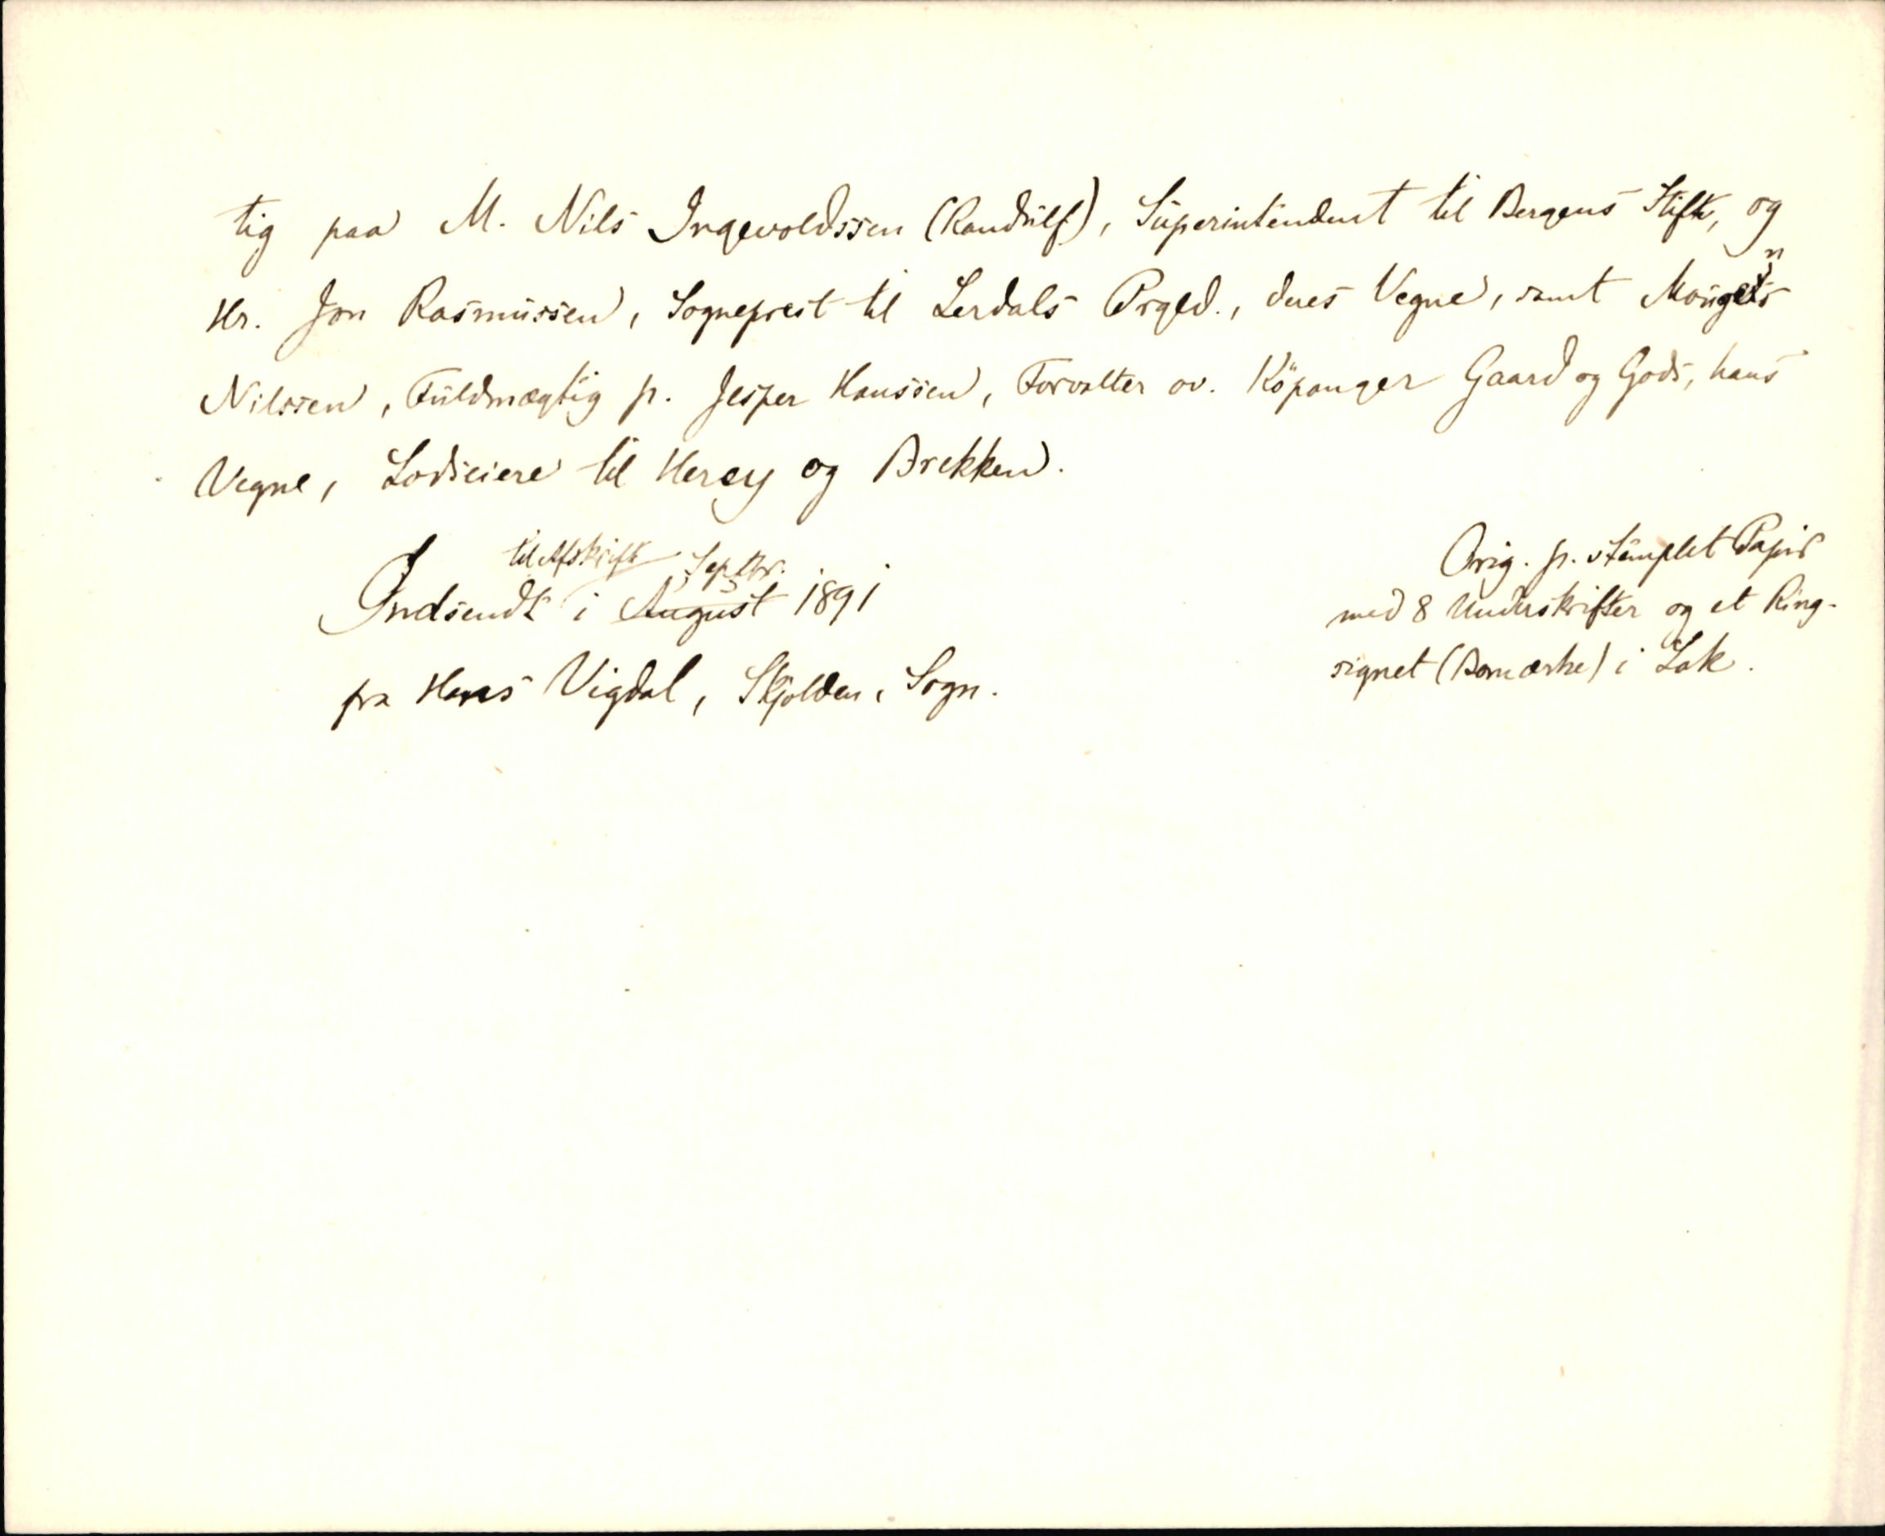 tig paa M. Nils Ingevoldssen (Randulf), Superintendent til Bergens Stift, og
Hr. Jon Rasmussen, Sogneprest til Lerdals Prgld., dres Vegne, samt Mougens
Nilssen, Fuldmægtig p. Jesper Hanssen, Forvalter ov. Köpanger Gaard og Gods, hans
Vegne, Lodseiere til Herey og Brekken.
til Afskrift Septbr.
Indsendt i August 1891
fra Hans Vigdal, Skjolden, Sogn.
Orig. p. stemplet Papir
med 8 Underskrifter og et Ring-
signet (Bomærke) i Lak.